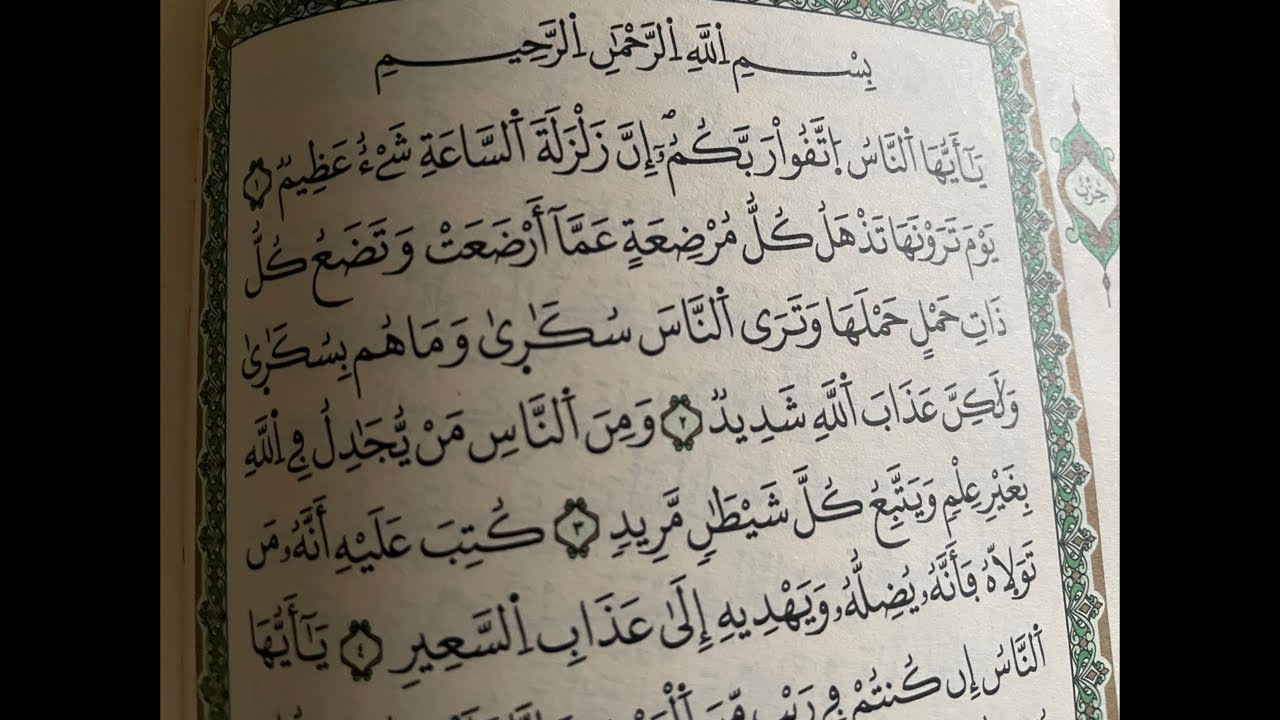 بِسْمِ اِ۬للَّهِ اِ۬لرَّحْمَٰنِ اِ۬لرَّحِيمِ
يَٰٓأَيُّهَا اَ۬لنَّاسُ اُ۪تَّقُواْ رَبَّكُمُۥٓۖ إِنَّ زَلْزَلَةَ اَ۬لسَّاعَةِ شَےْءٌ عَظِيمٞ ١
يَوْمَ تَرَوْنَهَا تَذْهَلُ كُلُّ مُرْضِعَةٍ عَمَّآ أَرْضَعَتْ وَتَضَعُ كُلُّ
ذَاتِ حَمْلٍ حَمْلَهَا وَتَرَى اَ۬لنَّاسَ سُكَٰر۪ىٰ وَمَا هُم بِسُكَٰر۪ىٰ
وَلَٰكِنَّ عَذَابَ اَ۬للَّهِ شَدِيدٞ ٢ وَمِنَ اَ۬لنَّاسِ مَنْ يُّجَٰدِلُ فِے اِ۬للَّهِ
بِغَيْرِ عِلْمٖ وَيَتَّبِعُ كُلَّ شَيْطَٰنٖ مَّرِيدٖ ٣ كُتِبَ عَلَيْهِ أَنَّهُۥ مَن
تَوَلَّاهُ فَأَنَّهُۥ يُضِلُّهُۥ وَيَهْدِيهِ إِلَىٰ عَذَابِ اِ۬لسَّعِيرِ ٤ يَٰٓأَيُّهَا
اَ۬لنَّاسُ إِن كُنتُمْ فِے رَيْبٖ مِّنَ
حزب